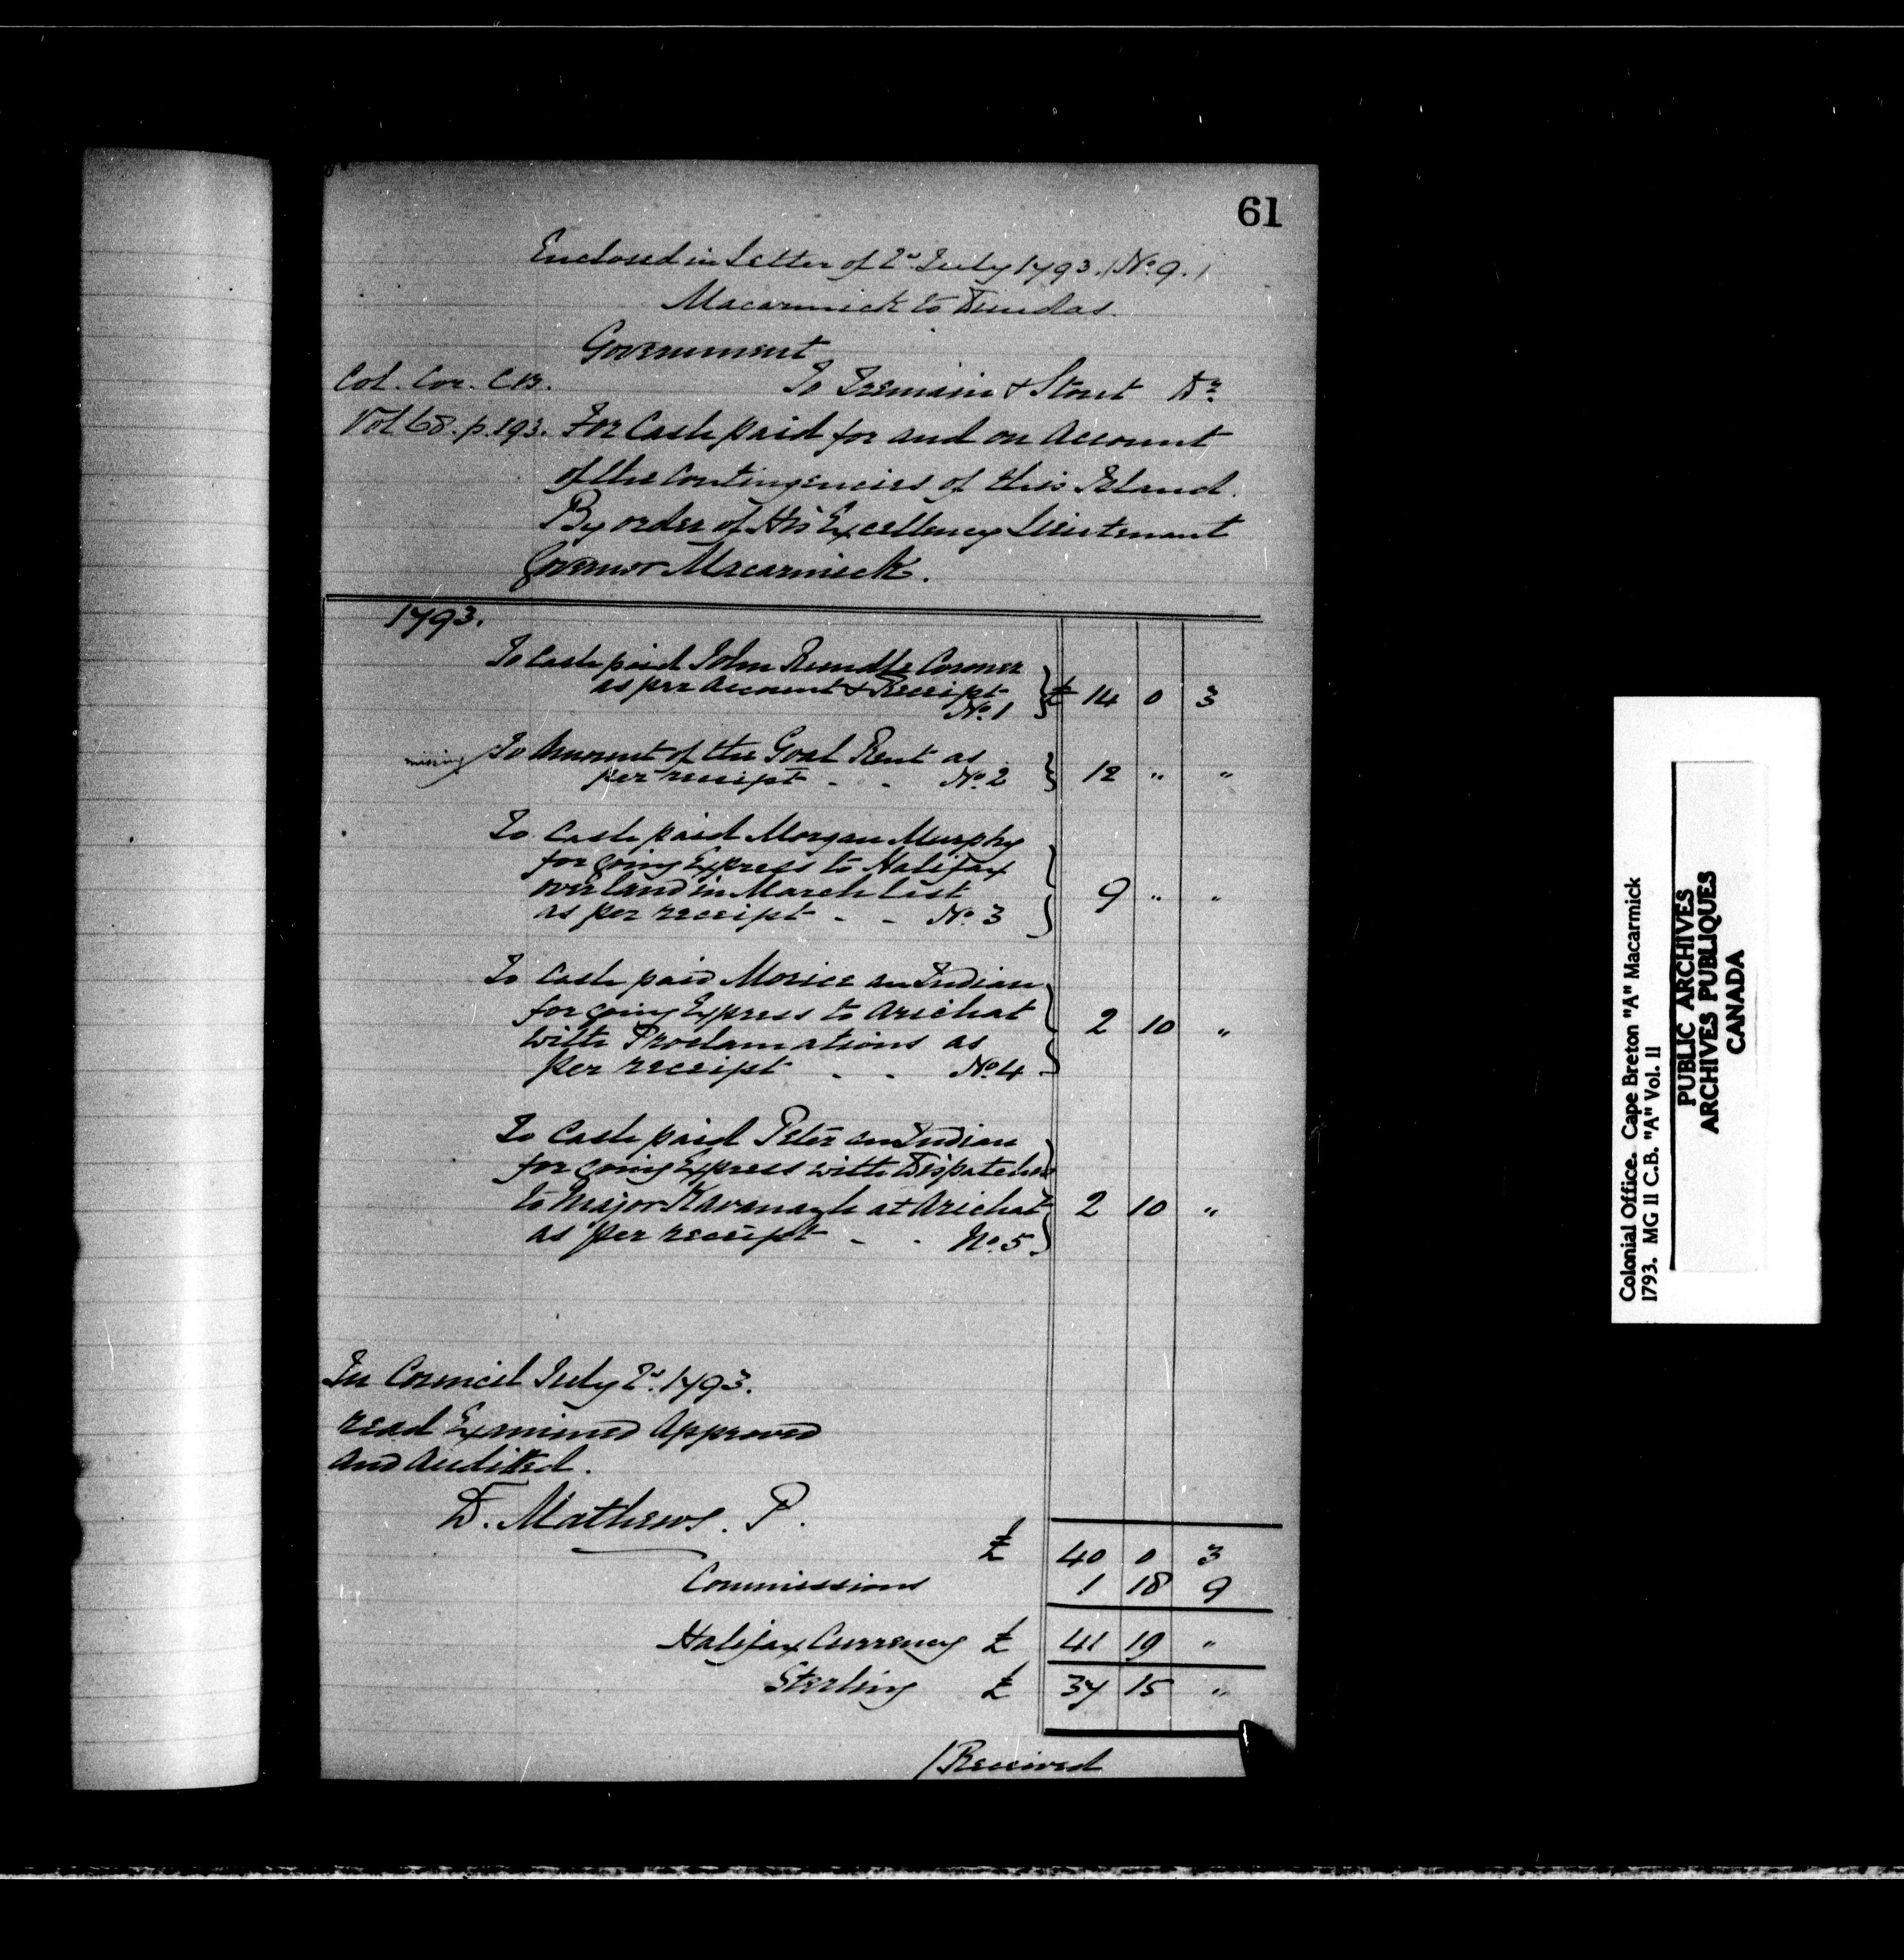 61
Enclosed in Letter of 2d July 1793. (No. 9.)
Macarmick to Dundas.
Government
Col. Cor. C.B. To Tremain & Stout Dr
Vol 68. p. 193. For Cash paid for and on Account
of the Contingencies of this Island.
By order of His Excellency Lieutenant
Governor Macarmick.
1793.
To Cash paid John Rundle Coroner
as per Account & Receipt £ 14 0 3
No. 1
To Amount of the Goal Rent as
missing per receipt - - No. 2 12 " "
To Cash paid Morgan Murphy
for going Express to Halifax
over land in March last 9 " "
as per receipt - - No. 3
To Cash paid Morice an Indian
for going Express to Arichat 2 10 "
with Proclamations as
per receipt - - No. 4
To Cash paid Peter an Indian
for going Express with Dispatches
to Major Kavanagh at Arichat 2 10 "
as per receipt - - No. 5.
In Council July 2d. 1793.
read Examined Approved
and Audited.
D. Mathews. P.
£ 40 0 3
Commissions 1 18 9
Halifax Currency £ 41 19 "
Sterling £ 37 15 "
/Received
Colonial Office. Cape Breton "A" Macarmick
1793. MG II C.B. "A" Vol. II
PUBLIC ARCHIVES
ARCHIVES PUBLIQUES
CANADA